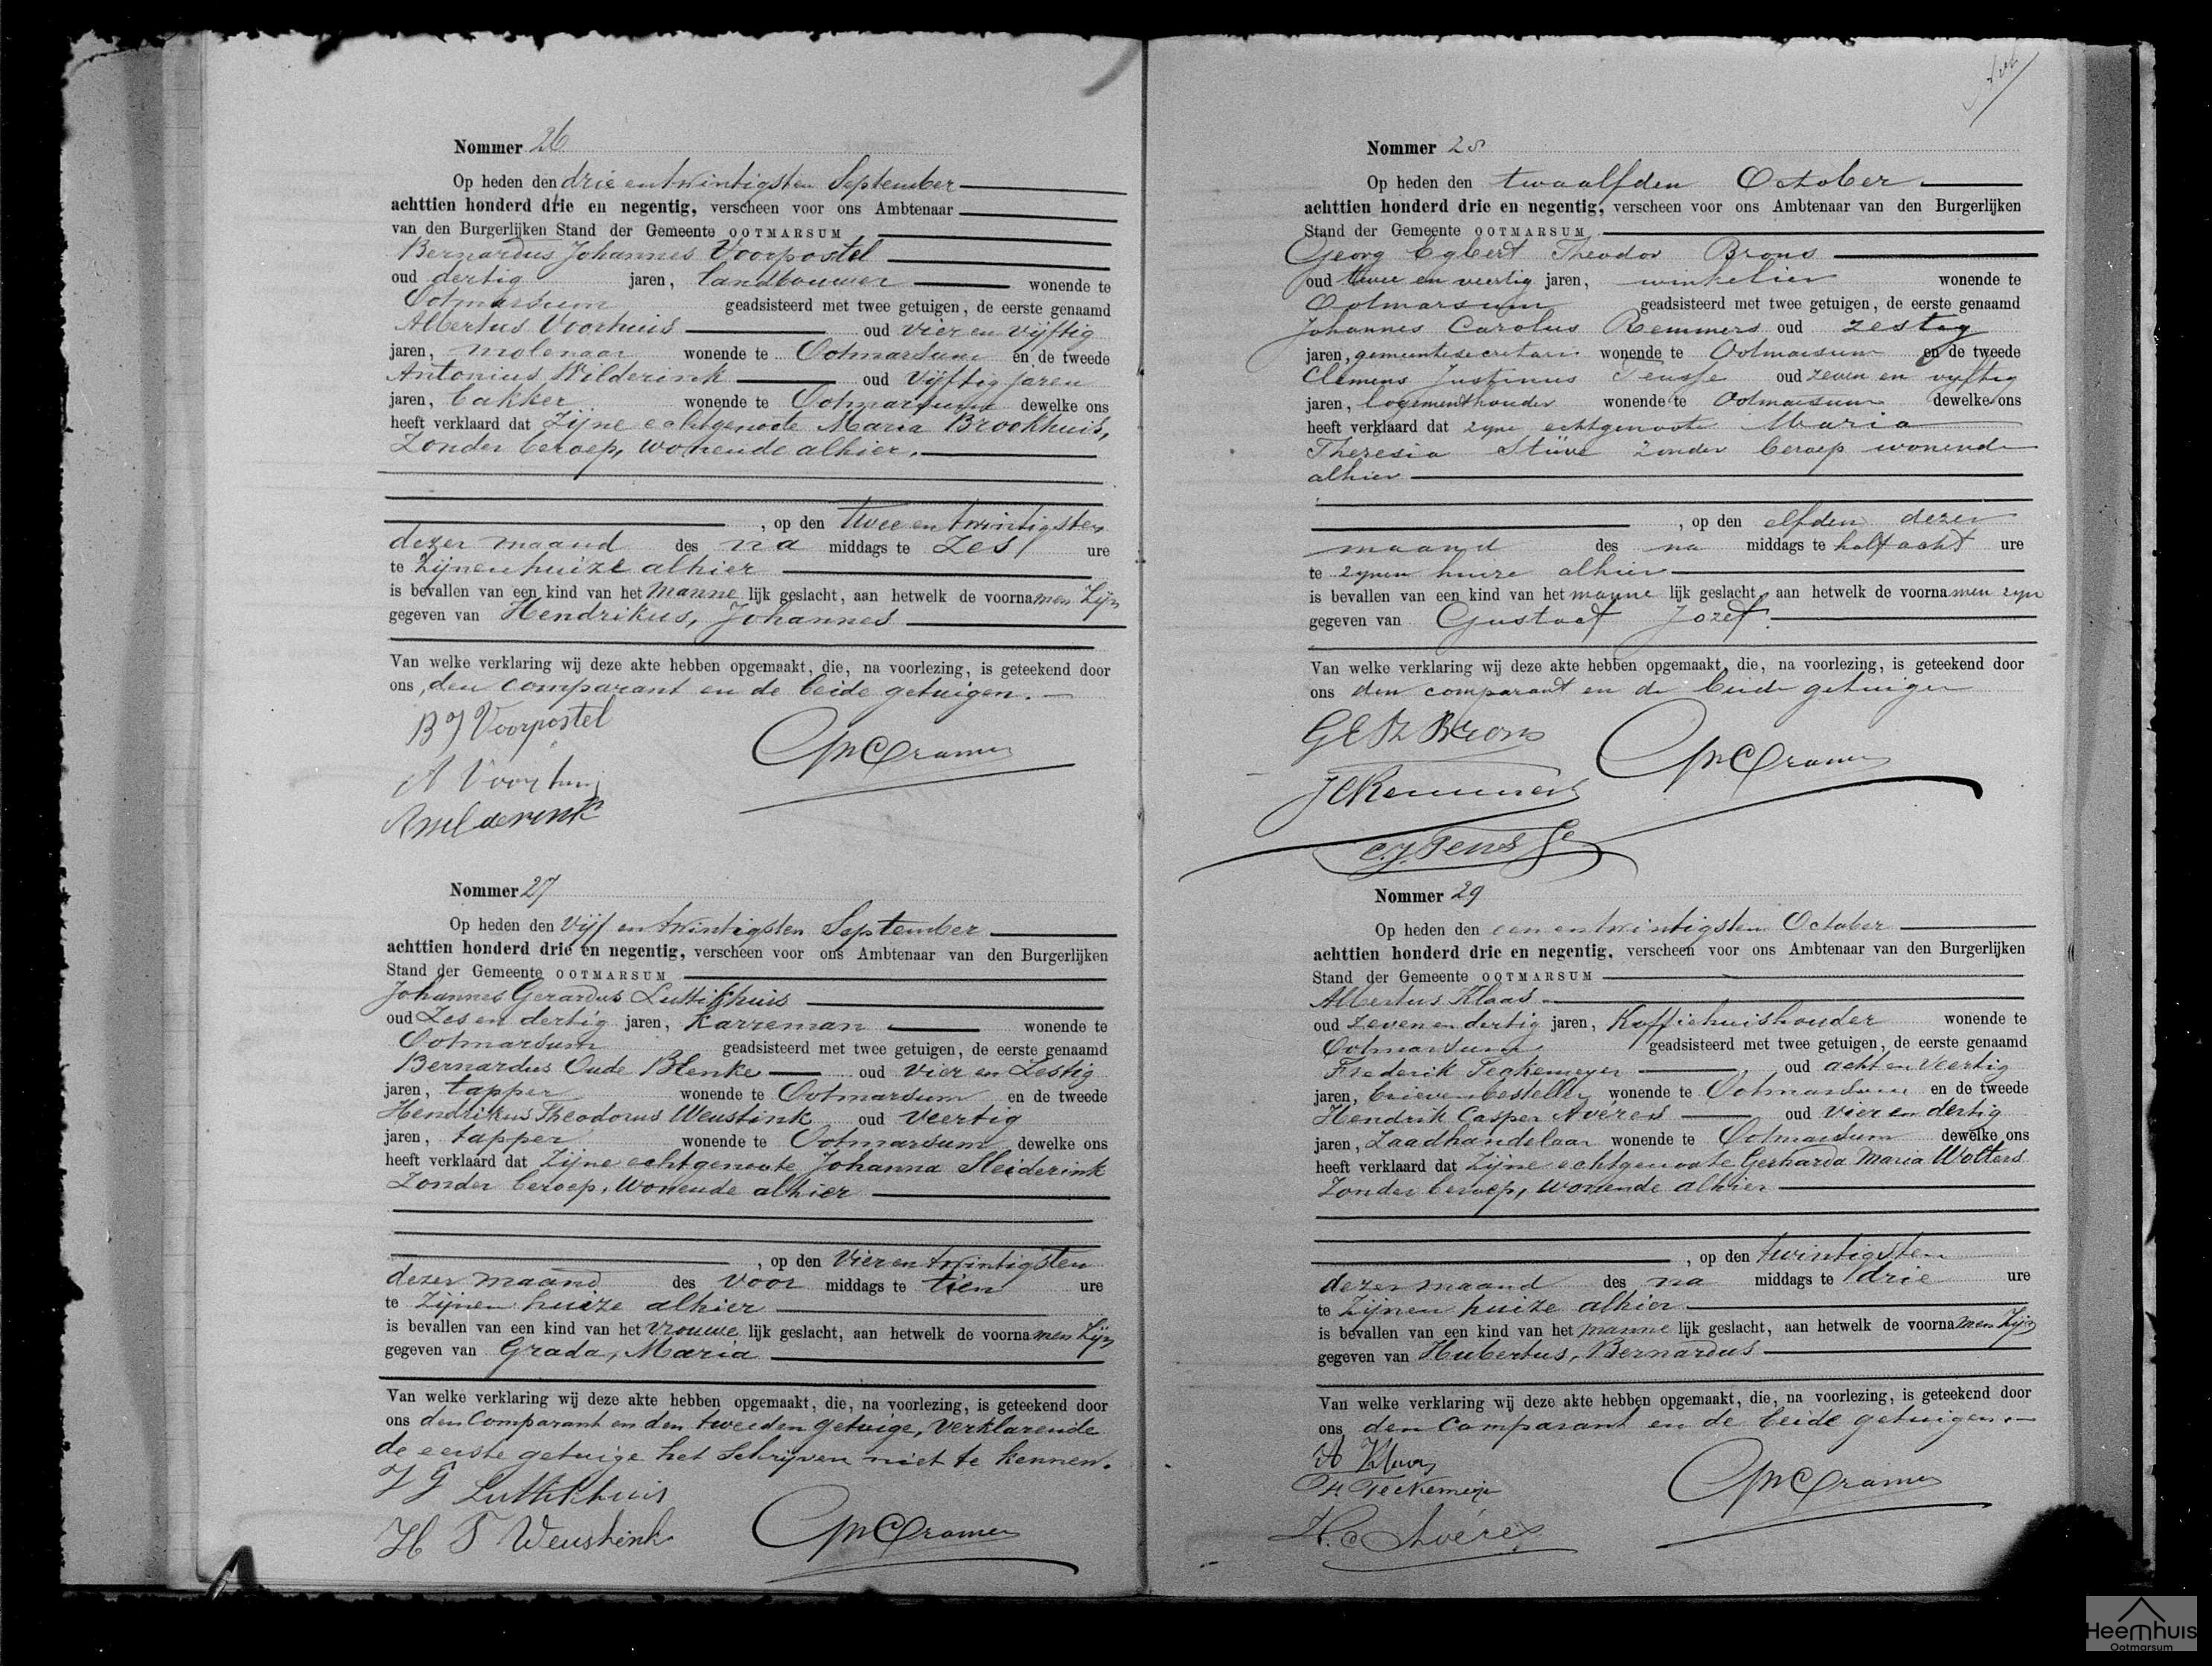 Nommer 26
Op heden den drie en twintigsten September
achttien honderd drie en negentig, verscheen voor ons Ambtenaar
van den Burgerlijken Stand der Gemeente OOTMARSUM
Bernardus Johannes Voorpostel
oud dertig jaren, landbouwer wonende te
Ootmarsum geadsisteerd met twee getuigen, de eerste genaamd
Albertus Voorhuis oud vier en vijftig
jaren, molenaar wonende te Ootmarsum en de tweede
Antonius Wilderink oud vijftig jaren
jaren, bakker wonende te Ootmarsum dewelke ons
heeft verklaard dat zijne echtgenoote Maria Brockhuis,
zonder beroep, wonende alhier.
, op den twee en twintigsten
dezer maand des na middags te zes ure
te zijnen huize alhier
is bevallen van een kind van het manne lijk geslacht, aan hetwelk de voornamen zijn
gegeven van Hendrikus, Johannes
Van welke verklaring wij deze akte hebben opgemaakt, die, na voorlezing, is geteekend door
ons, den comparant en de beide getuigen.
B J Voorpostel
A Voorhuis
AWilderink
Cramer
Nommer 27
Op heden den vijf en twintigsten September
achttien honderd drie en negentig, verscheen voor ons Ambtenaar van den Burgerlijken
Stand der Gemeente OOTMARSUM
Johannes Gerardus Luttikhuis
oud zes en dertig jaren, karreman wonende te
Ootmarsum geadsisteerd met twee getuigen, de eerste genaamd
Bernardus Oude Blenke oud vier en zestig
jaren, tapper wonende te Ootmarsum en de tweede
Hendrikus Theodorus Weustink oud veertig
jaren, tapper wonende te Ootmarsum dewelke ons
heeft verklaard dat zijne echtgenoote Johanna Sleiderink
zonder beroep, wonende alhier
, op den vier en twintigsten
dezer maand des voor middags te tien ure
te zijnen huize alhier
is bevallen van een kind van het vrouwe lijk geslacht, aan hetwelk de voornamen zijn
gegeven van Grada, Maria
Van welke verklaring wij deze akte hebben opgemaakt, die, na voorlezing, is geteekend door
ons den comparant en den tweeden getuige, verklarende
de eerste getuige het schrijven niet te kennen.
J G Luttikhuis
H T Weustink
Cramer
Nommer 28
Op heden den twaalfden October
achttien honderd drie en negentig, verscheen voor ons Ambtenaar van den Burgerlijken
Stand der Gemeente OOTMARSUM
Georg Egbert Theodor Brons
oud twee en veertig jaren, winkelier wonende te
Ootmarsum geadsisteerd met twee getuigen, de eerste genaamd
Johannes Carolus Remmers oud zestig
jaren, gemeentesecretaris wonende te Ootmarsum en de tweede
Clemens Justinus Teusse oud zeven en vijftig
jaren, logementhouder wonende te Ootmarsum dewelke ons
heeft verklaard dat zijne echtgenoote Maria
Theresia Stüve zonder beroep wonende
alhier
, op den elfden dezer
maand des na middags te half acht ure
te zijnen huize alhier
is bevallen van een kind van het manne lijk geslacht, aan hetwelk de voornamen zijn
gegeven van Gustaaf Jozef.
Van welke verklaring wij deze akte hebben opgemaakt, die, na voorlezing, is geteekend door
ons den comparant en de beide getuigen
G E Th Brons
JCRemmers
Cramer
C.J. Teusse
Nommer 29
Op heden den een en twintigsten October
achttien honderd drie en negentig, verscheen voor ons Ambtenaar van den Burgerlijken
Stand der Gemeente OOTMARSUM
Albertus Klaas
oud zeven en dertig jaren, Koffiehuishouder wonende te
Ootmarsum geadsisteerd met twee getuigen, de eerste genaamd
Frederik Tegkemeyer oud acht en veertig
jaren, brievenbesteller wonende te Ootmarsum en de tweede
Hendrik Casper Avéres oud vier en dertig
jaren, zaadhandelaar wonende te Ootmarsum dewelke ons
heeft verklaard dat zijne echtgenoote Gerharda Maria Wolters
zonder beroep, wonende alhier
, op den twintigsten
dezer maand des na middags te drie ure
te zijnen huize alhier
is bevallen van een kind van het manne lijk geslacht, aan hetwelk de voornamen zijn
gegeven van Hubertus, Bernardus
Van welke verklaring wij deze akte hebben opgemaakt, die, na voorlezing, is geteekend door
ons den comparant en de beide getuigen.
A Klaas
Fr Teckemeije
H.C Avéres
Cramer
Heemhuis
Ootmarsum